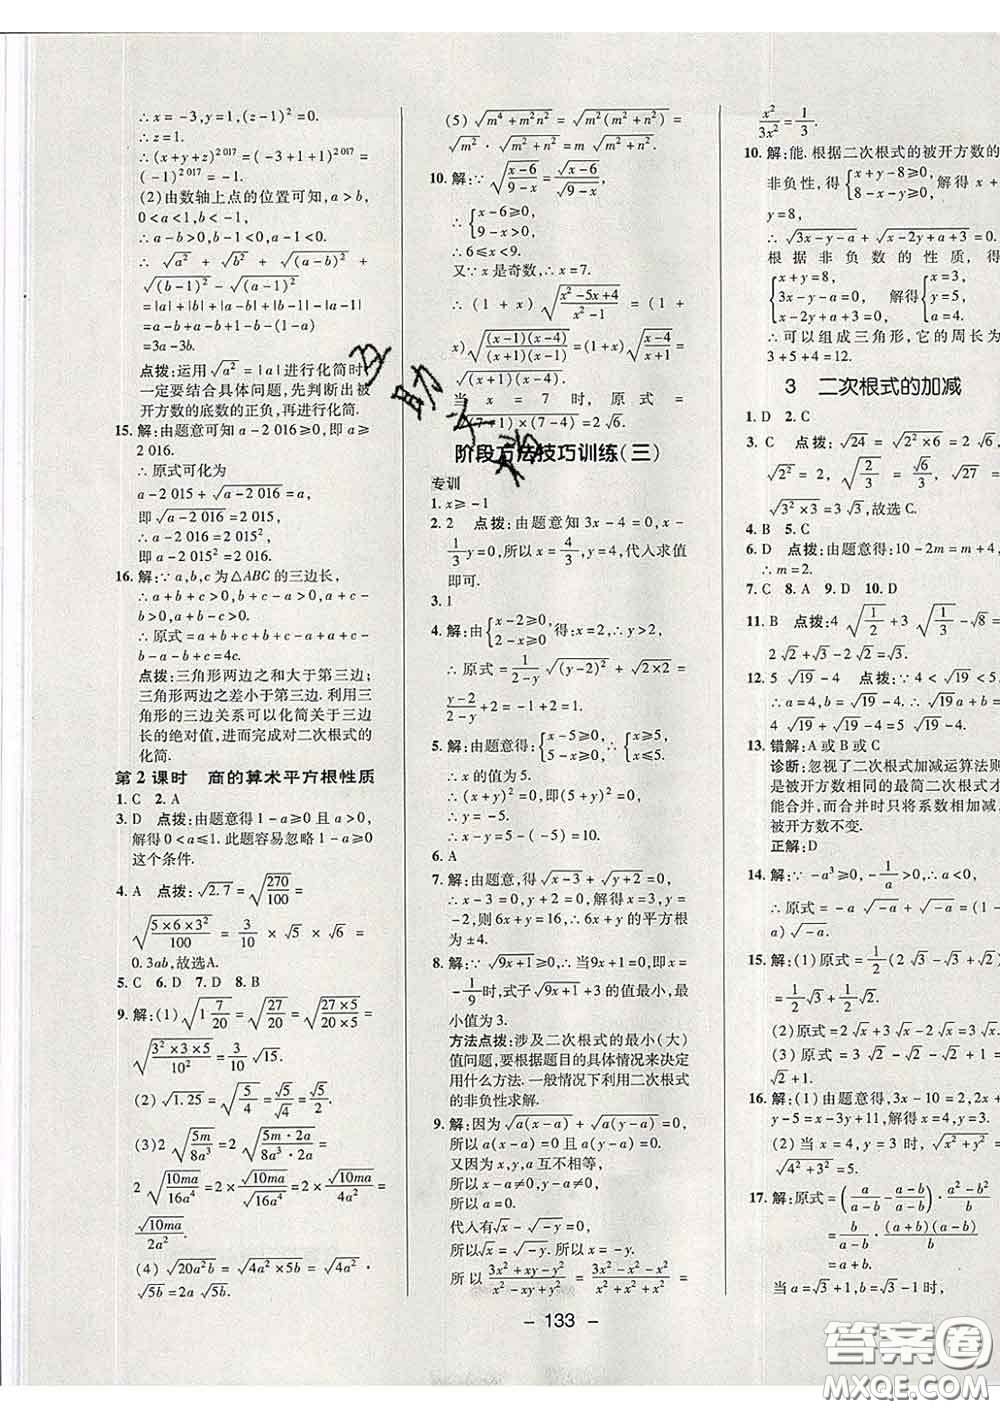 ∴x=-3,y=1,(z-1)²=0.
∴z=1.
∴(x+y+z)²⁰¹⁷=(-3+1+1)²⁰¹⁷=
(-1)²⁰¹⁷=-1.
(2)由数轴上点的位置可知,a>b,
0<a<1,b<-1.
∴a-b>0,a-1<0,b-1<0.
∴√a² + √b² + √(a-b)² +
√(b-1)² - √(a-1)²
=|a|+|b|+|a-b|+|b-1|-|a-1|
=a-b+(a-b)+(1-b)-(1-a)
=3a-3b.
点拨:运用√a²=|a|进行化简时,
一定要结合具体问题,先判断出被
开方数的底数的正负,再进行化简.
15.解:由题意可知a-2 016≥0,即a≥
2 016.
∴原式可化为
a-2 015+√(a-2 016)=a,
即√(a-2 016)=2 015,
∴a-2 016=2 015²,
即a-2 015²=2 016.
16.解:∵a,b,c为△ABC的三边长,
∴a+b+c>0,b+c-a>0,
c+a-b>0.
∴原式=a+b+c+b+c-a-b+
c+a-a-b+c=4c.
点拨:三角形两边之和大于第三边;
三角形两边之差小于第三边.利用三
角形的三边关系可以化简关于三边长
的绝对值,进而完成对二次根式的
化简.
第2课时 商的算术平方根性质
1.C 2.A
3.D 点拨:由题意得1-a≥0且a>0,
解得0<a≤1.此题容易忽略1-a≥0
这个条件.
4.A 点拨:√2.7=√(270/100)=
√(5×6×3²/100) = 3/10 × √5 × √6 =
0.3ab,故选A.
5.C 6.D 7.D 8.B
9.解:(1)√(1 7/20)=√(27/20)=√(27×5/20×5)=
√(3²×3×5/10²)=3/10 √15.
(2)√1.25=√(5/4)=√5/√4=√5/2.
(3)2√(5m/8a³)=2√(5m·2a/8a³·2a)=
2√(10ma/16a⁴)=2×√10ma/√16a⁴=2×√10ma/4a²=
√10ma/2a².
(4) √20a²b = √(4a²×5b) = √4a² ·
√5b=2a√5b.
(5) √(m⁴+m²n²) = √(m²(m²+n²)) =
√m² · √(m²+n²)=m√(m²+n²).
10.解:∵√((x-6)/(9-x))=√(x-6)/√(9-x),
∴{x-6≥0, 9-x>0,
∴6≤x<9.
又∵x是奇数,∴x=7.
∴(1+x)√((x²-5x+4)/(x²-1)) = (1+
x)√((x-1)(x-4)/(x+1)(x-1))=(1+x)√((x-4)/(x+1))
=√((x+1)(x-4)).
当 x = 7 时,原式 =
√((7+1)×(7-4))=2√6.
阶段方法技巧训练(三)
专训
1.x≥-1
2.2 点拨:由题意知3x-4=0,x-
1/3 y=0,所以x=4/3,y=4,代入求值
即可.
3.1
4.解:由{x-2≥0, 2-x≥0得:x=2,∴y>2,
∴原式=1/(2-y) √(y-2)² + √(2×2) =
(y-2)/(2-y)+2=-1+2=1.
5.解:由题意得:{x-5≥0, 5-x≥0,∴{x≥5, x≤5,
∴x=5.
∴y=-5.
∴x-y=5-(-5)=10.
6.A
7.解:由题意,得√(x-3)+√(y+2)=0,
∴x-3=0,y+2=0,解得x=3,y=
-2,则6x+y=16,∴6x+y的平方根
为±4.
8.解:∵√(9x+1)≥0,∴当9x+1=0,即x=
-1/9时,式子√(9x+1)+3的值最小,最
小值为3.
方法点拨:涉及二次根式的最小(大)
值问题,要根据题目的具体情况来决定
用什么方法.一般情况下利用二次根式
的非负性求解.
9.解:因为√(a(x-a))+√(a(y-a))=0,
所以a(x-a)=0且a(y-a)=0.
又因为x,y,a互不相等,
所以x-a≠0,y-a≠0.
所以a=0.
代入有√x-√-y=0,
所以√x=√-y.所以x=-y.
所以(3x²+xy-y²)/(x²-xy+y²)=(3x²-x²-x²)/(x²+x²+x²)=
x²/3x²=1/3.
10.解:能.根据二次根式的被开方数的
非负性,得{x+y-8≥0, 8-x-y≥0,解得x+
y=8,
∴√(3x-y-a)+√(x-2y+a+3)=0.
根据非负数的性质,得
{x+y=8, 3x-y-a=0, x-2y+a+3=0, 解得{x=3, y=5, a=4.
∴可以组成三角形,它的周长为
3+5+4=12.
3 二次根式的加减
1.D 2.C
3.C 点拨:√24=√(2²×6)=
√2²=2,√(2/3)=√6/3,√18=
√(3²×3)=3√3,故选C.
4.B 5.C
6.D 点拨:由题意得:10-2m=m+4,
∴m=2.
7.C 8.A 9.D 10.D
11.B 点拨:4√(1/2)+3√(1/3)-√8=
2√2+√3-2√2=√3.
12.5√19-4 点拨:∵4<√19<5,
∴a=4,b=√19-4,
4√19+√19-4=5√19-4.
13.错解:A或B或C
诊断:忽视了二次根式加减运算法则
是被开方数相同的最简二次根式才
能合并,而合并时只将系数相加减,
被开方数不变.
正解:D
14.解:∵-a³≥0,-1/a>0,∴a<0.
∴原式=-a√-a+√-a=(1-
a)√-a.
15.解:(1)原式=1/2(2√3-√3+√2)
=1/2√3+1/2√2.
(2)原式=2√x+3√x-2√x=3√x.
(3)原式=3√2-√2-√2+1=
√2+1.
16.解:(1)由题意得,3x-10=2,2x+
y-5=x-3y+11,解得x=4,y=3.
(2)当x=4,y=3时,√(x²+y²)=
√(4²+3²)=5.
17.解:原式=(a/(a-b)-(a-b)/(a-b))·(a²-b²)/b
=b/(a-b)·(a+b)(a-b)/b
=a+b.
当a=√3+1,b=√3-1时,
- 133 -
互助文档
答案圈
MXQE.COM